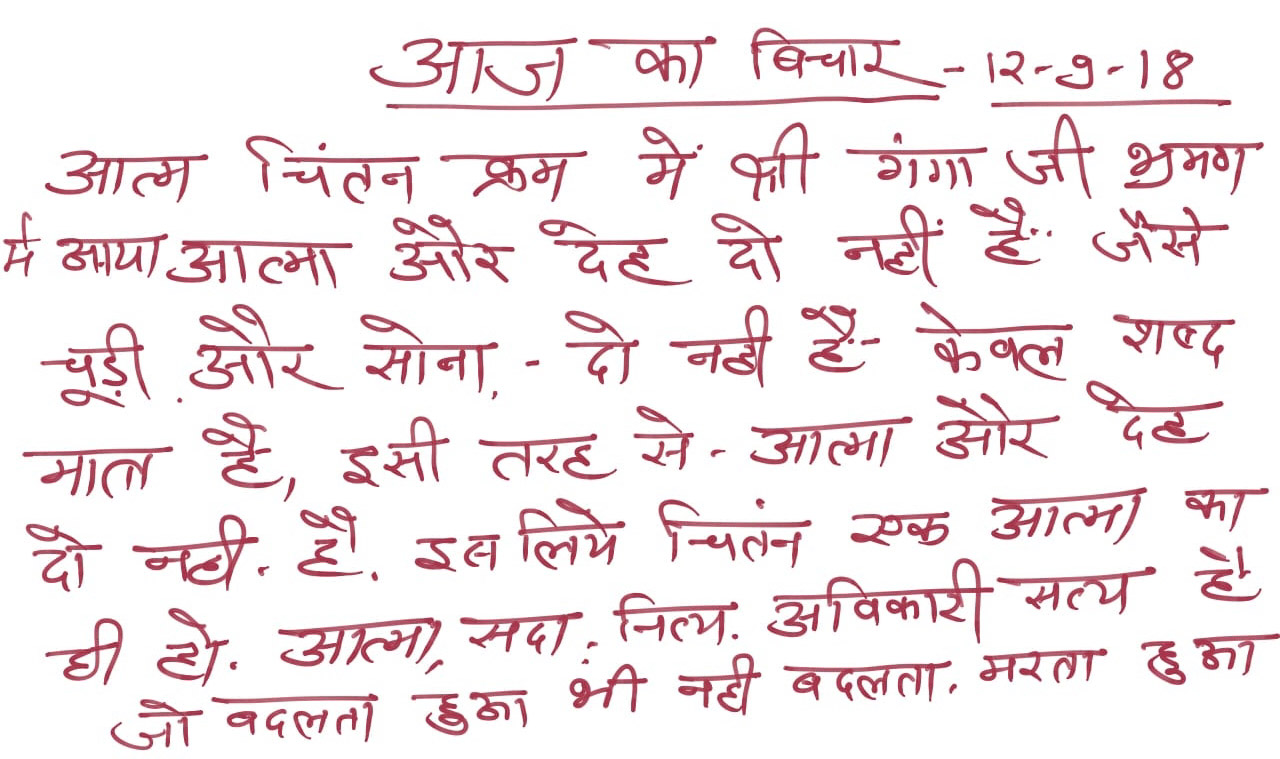 आज का बिचार - 12-9-18
आत्म चिंतन क्रम में श्री गंगा जी भ्रमण
में आया आत्मा और देह दो नहीं हैं.. जैसे
चूड़ी और सोना, - दो नही हैं - केवल शब्द
मात्र है, इसी तरह से - आत्मा और देह
दो नही. है. इस लिये चिंतन एक आत्मा का
ही हो. आत्मा, सदा. नित्य. अविकारी सत्य है
जो बदलता हुआ भी नही बदलता. मरता हुआ